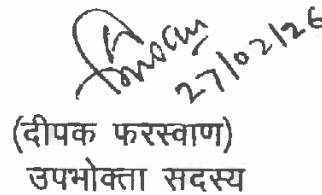 27/02/26
(दीपक फरस्वाण)
उपभोक्ता सदस्य